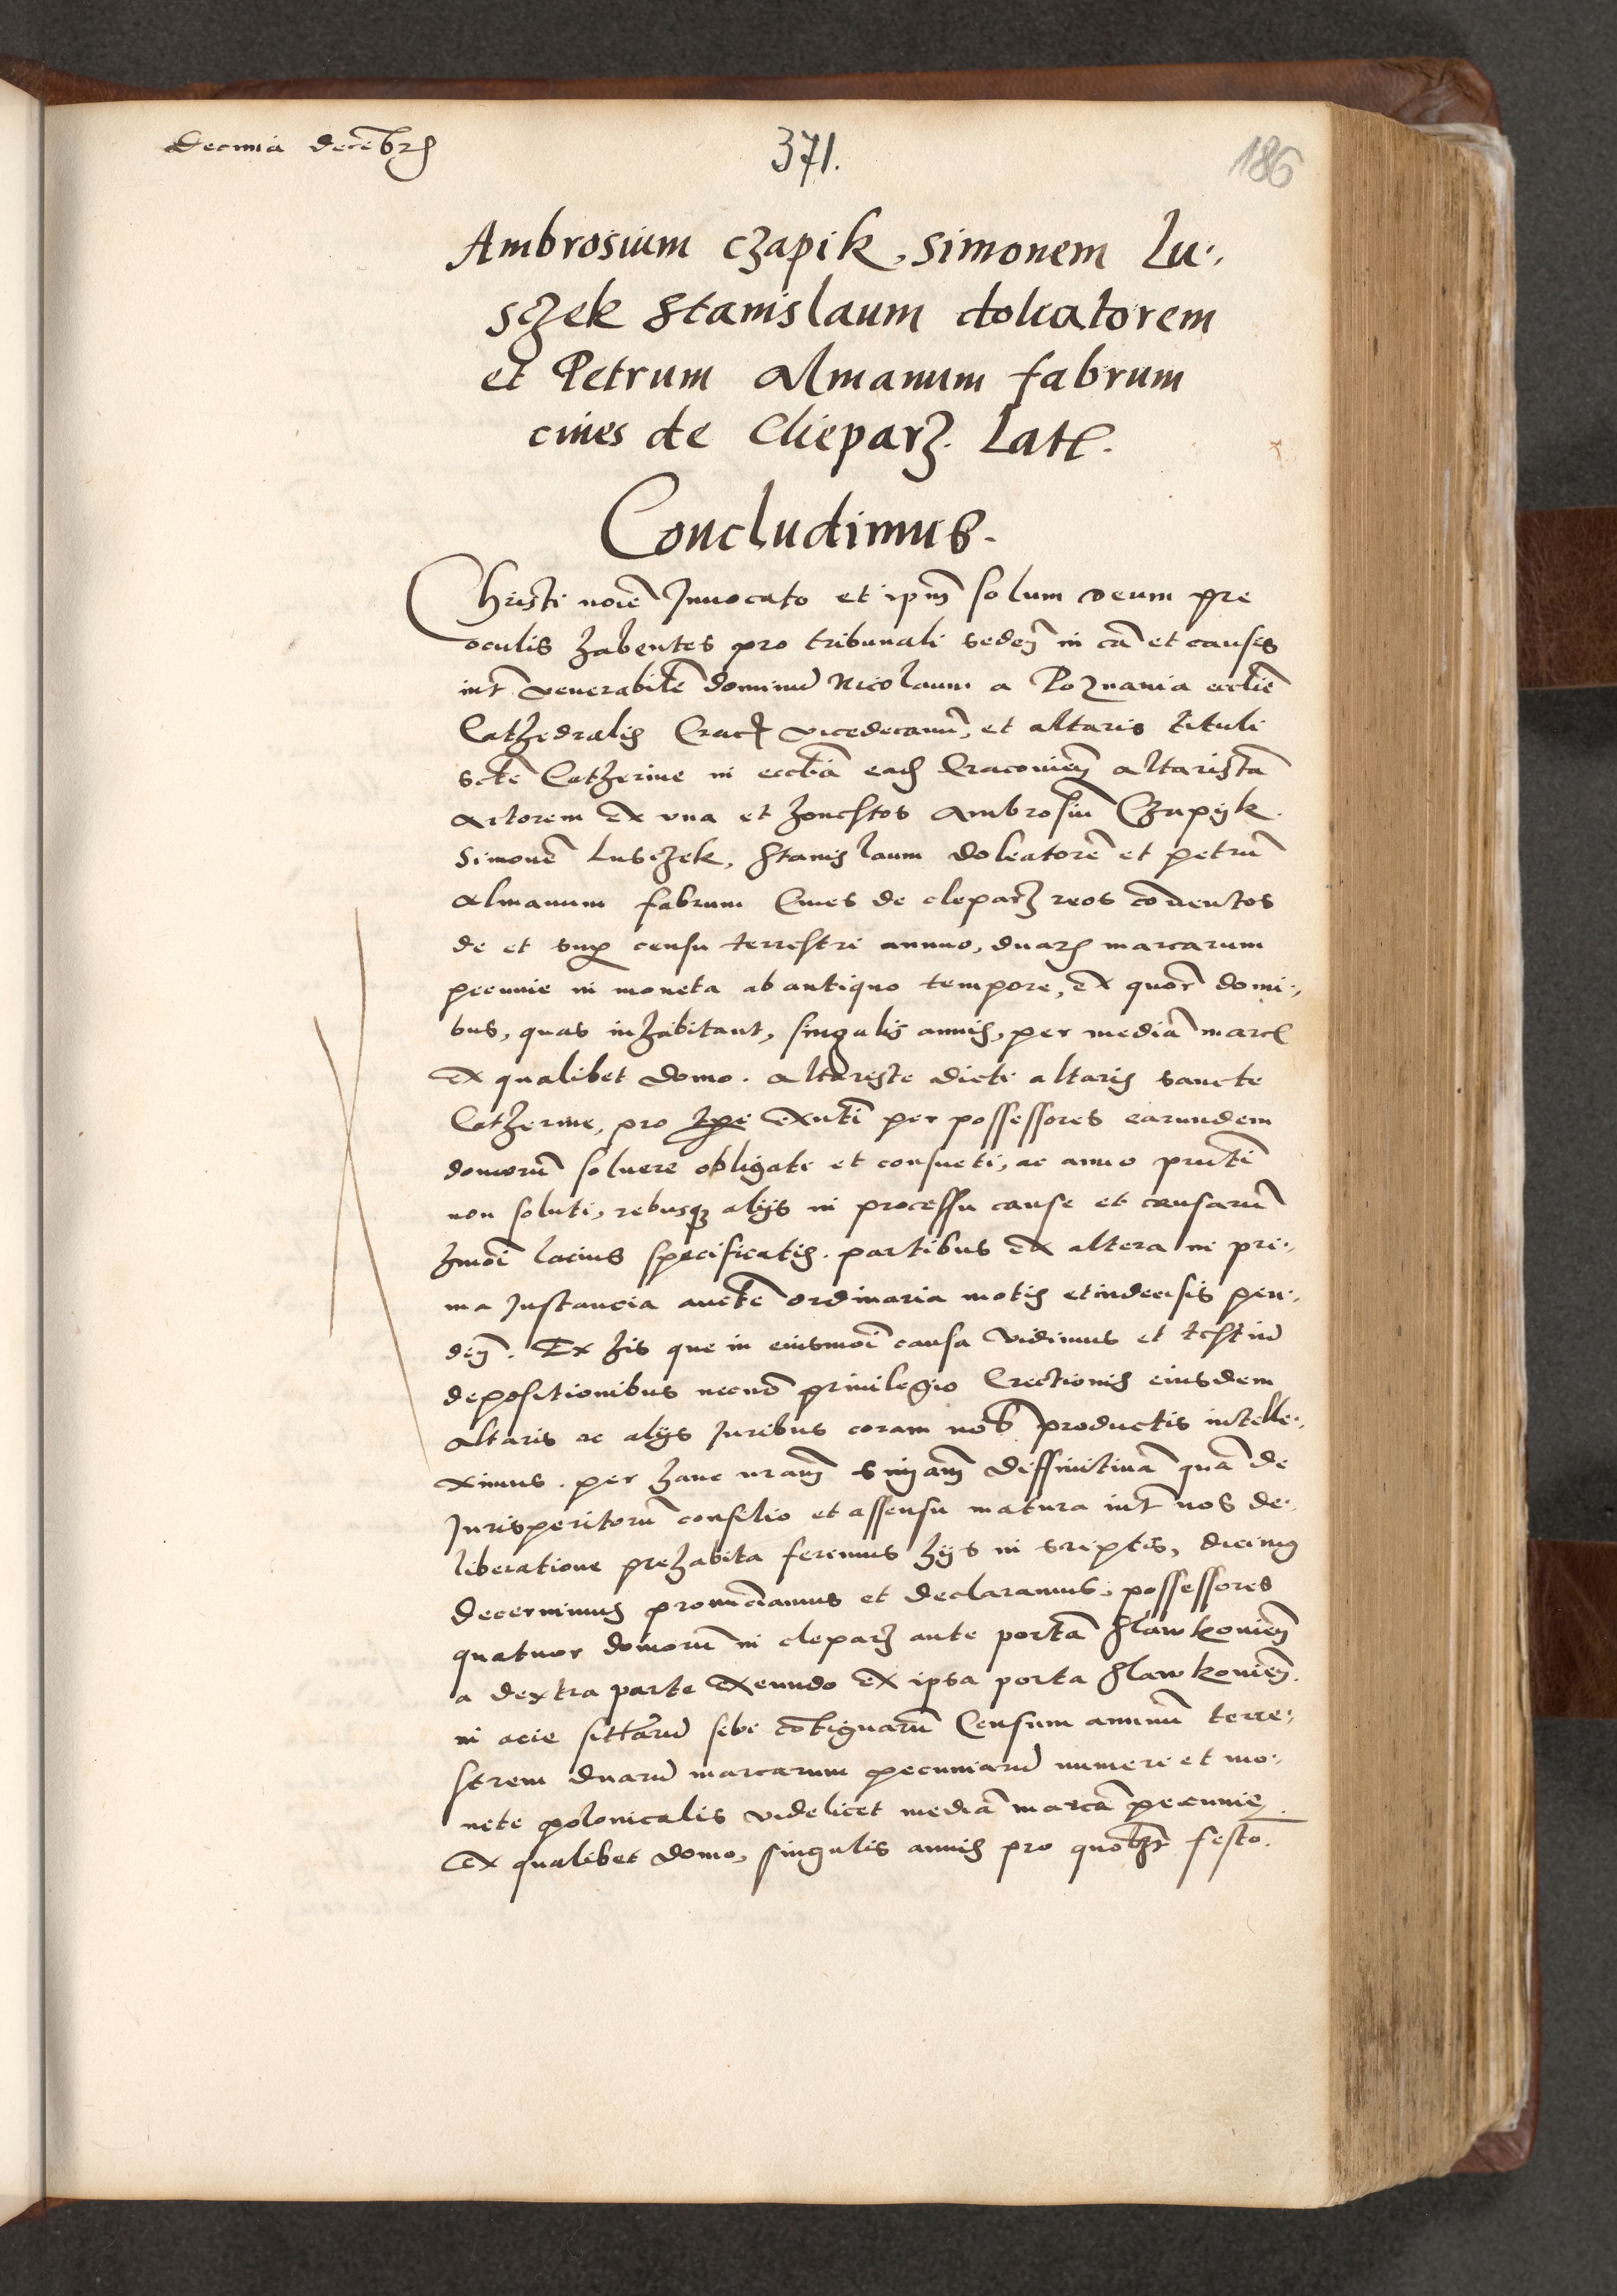 Decima decēbrꝭ
371.
186
Ambrosium czapik, Simonem Lu-,
sczek Stanislaum doleatorem
et Petrum Almanum fabrum
ciues de Clieparz. Latꝭ.
Concludimus.
Christi noīe Inuocato et ipm̄ solum deum pre
oculis habentes pro tribunali seden̄ in cā et causis
int̄ venerabilē dominū Nicolaum a Poznania ecclīe
Cathedralis Cracꝭ vicedecanū, et altaris tituli
sctē Catherine in ecclīa eadꝭ Cracouien̄ altaristā
actorem ex vna et honestos Ambrosiū Czapyk.
Simonē Lusczek, Stanislaum doleatorē et petrū
almanum fabrum Ciues de cleparz reos cōuentos
de et suꝑ censu terrestri annuo, duarꝝ marcarum
pecunie in moneta ab antiquo tempore, ex quor̄ domi-,
bus, quas inhabitant, singulis annis, per mediā marcꝭ
ex qualibet domo. altariste dicti altaris sancte
Catherine, pro tp̄e exn̄ti per possessores earundem
domorū soluere obligati et consueti, ac anno prn̄ti
non soluti, rebusqꝫ alijs in processu cause et causarū
hm̄oi lacius specificatis. partibus ex altera in pri-,
ma Instancia auctē ordinaria motis et indecisis pen-,
den̄. Ex his que in eiusmōi causa vidimus et testiū
depositionibus necnō priuilegio Erectionis eiusdem
altaris ac alijs Iuribus coram nob̄ productis intelle-,
ximus. per hanc nr̄am sn̄iam diffinitiuā quā de
Iurisperitorū consilio et assensu matura int̄ nos de-,
liberatione prehabita ferimus hijs in scriptis, dicimꝰ
decernimus pronūciamus et declaramus, possessores
quatuor domorū in cleparz ante portā Slawkouien̄
a dextra parte exeundo ex ipsa porta Slawkouien̄.
in acie sittarū sibi cōtiguarū Censum annuū terre-,
strem duarū marcarum pecuniarū numeri et mo-,
nete polonicalis videlicet mediā marcā pecunie
ex qualibet domo, singulis annis pro quolꝫt festo.